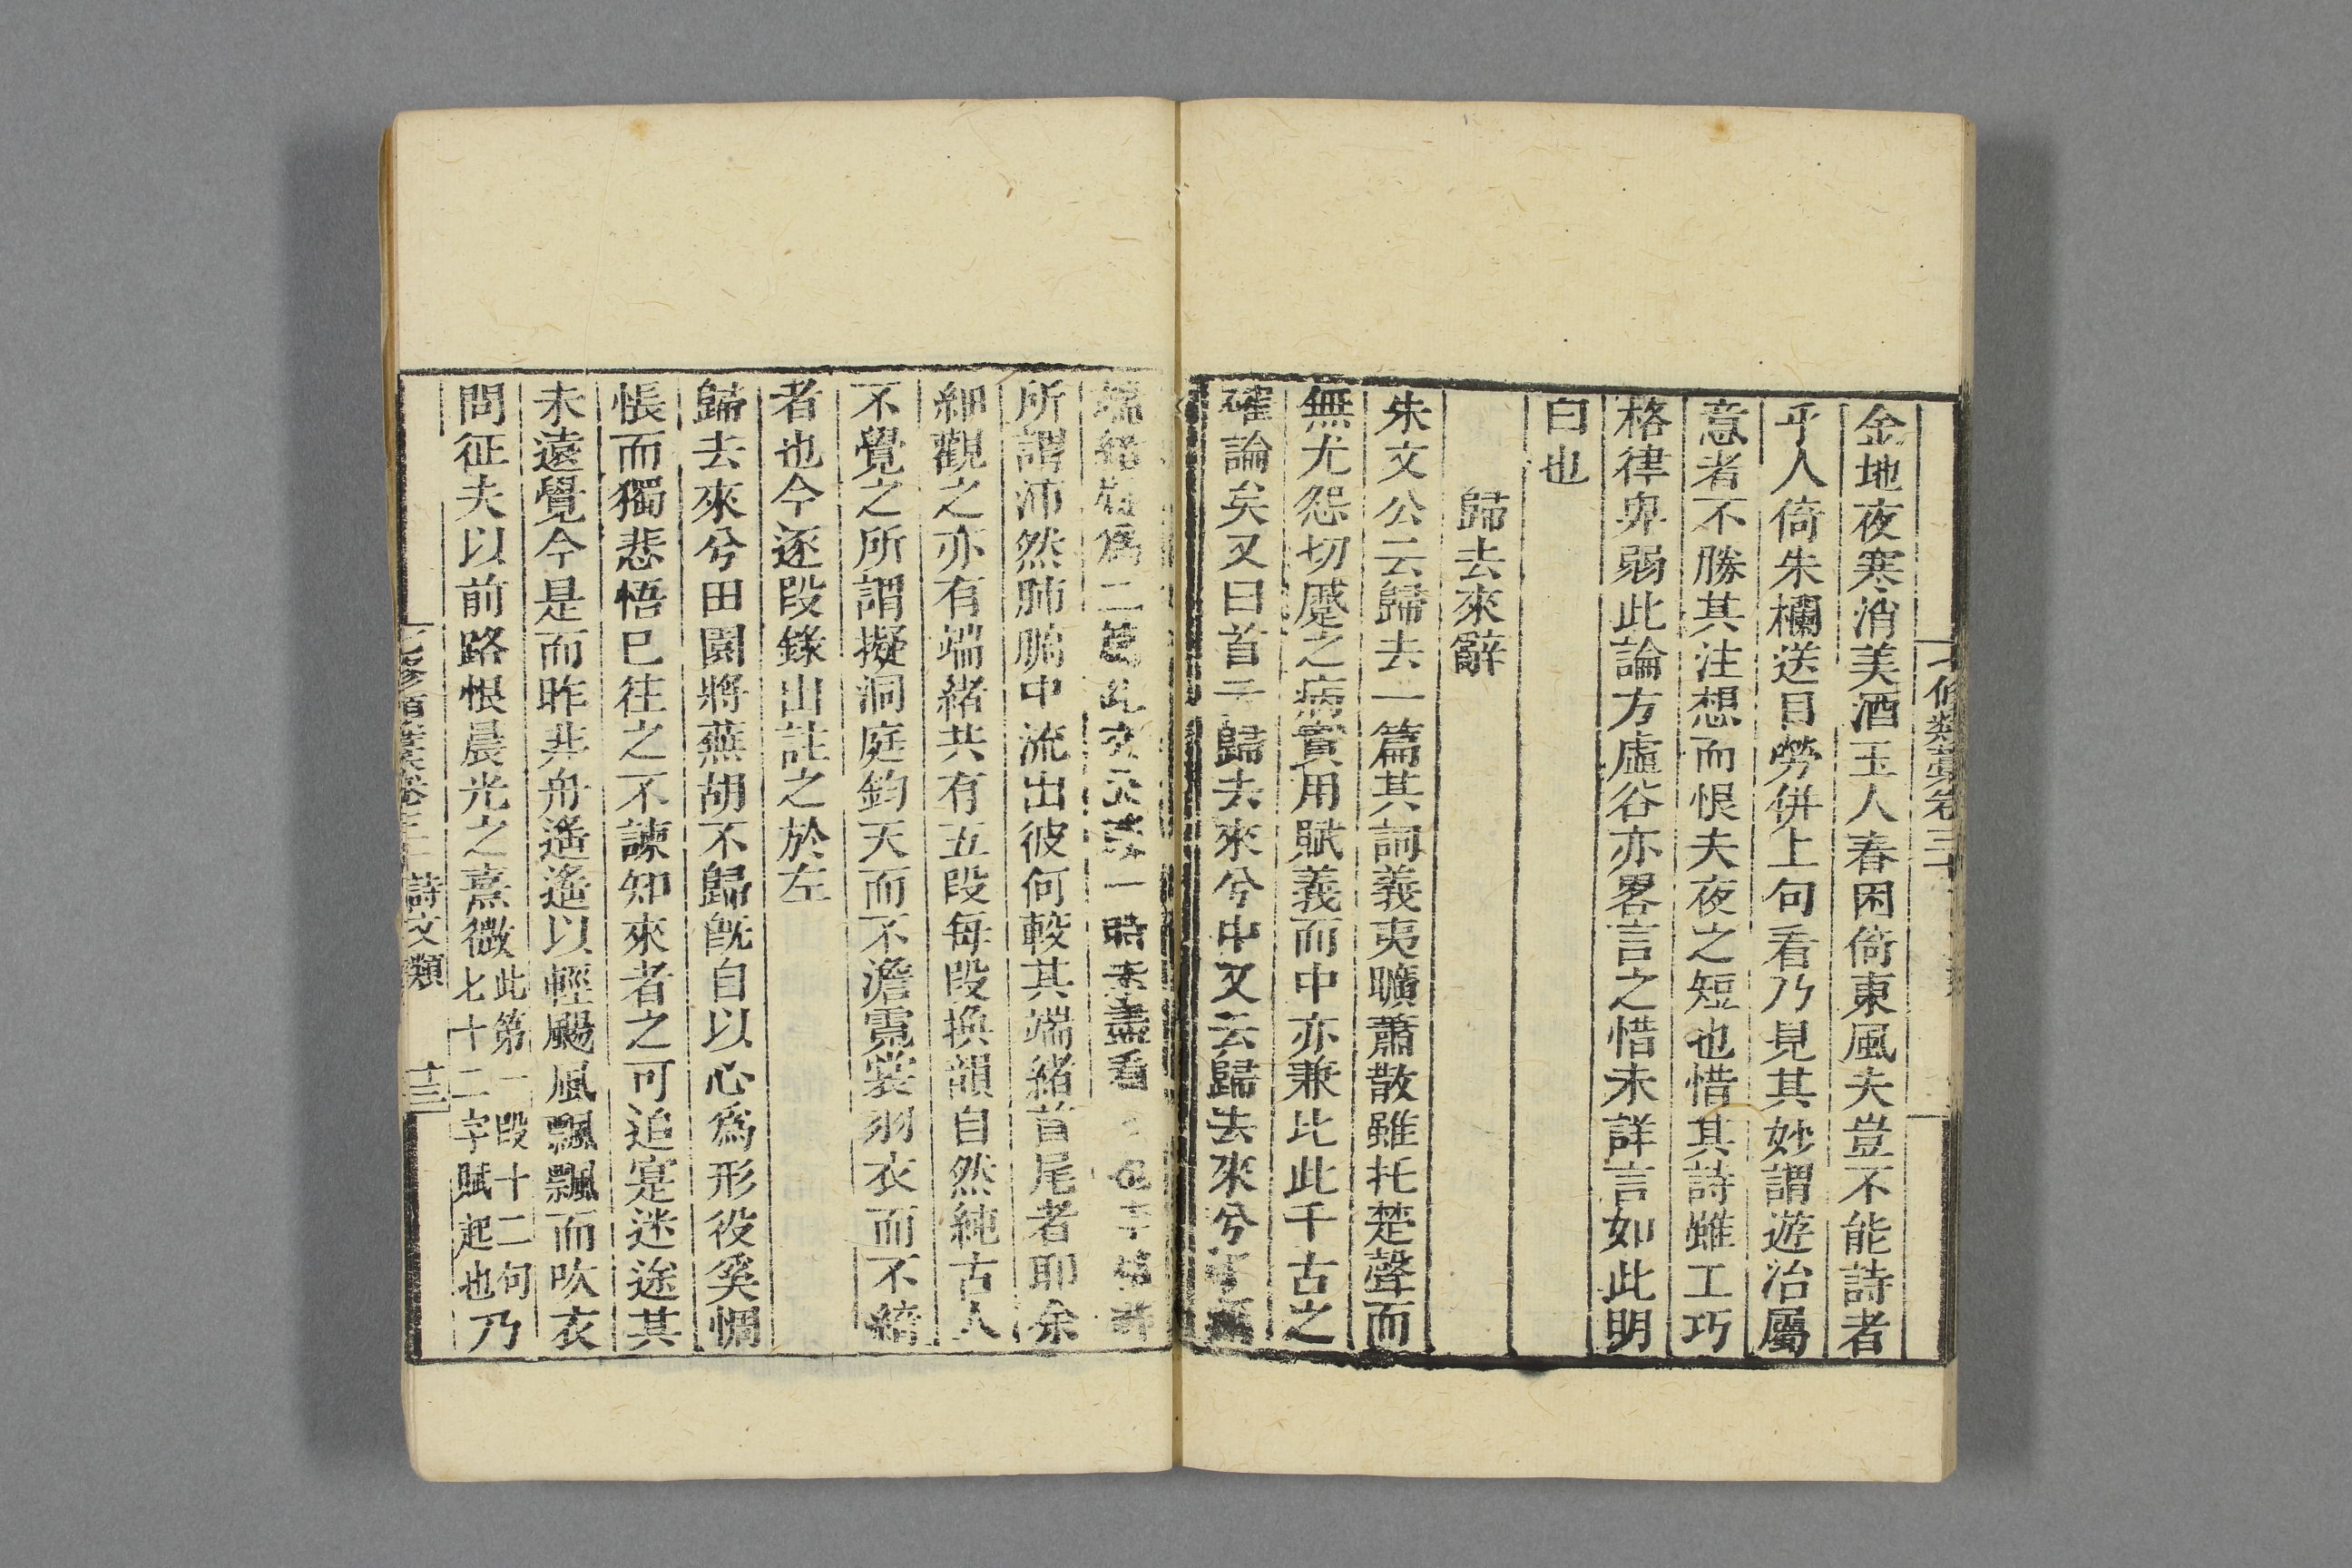 七修類藁卷三十
金地夜寒消美酒玉人春困倚東風夫豈不能詩者
乎人倚朱欄送目勞併上句看乃見其妙謂遊冶屬
意者不勝其注想而恨夫夜之短也惜其詩雖工巧
格律卑弱此論方虛谷亦畧言之惜未詳言如此明
白也
歸去來辭
朱文公云歸去一篇其詞義夷曠蕭散雖托楚聲而
無尤怨切蹙之病實用賦義而中亦兼比此千古之
確論矣又曰首云歸去來兮中又云歸去來兮
端緒 爲二 此文 一時未盡看
所謂沛然肺腑中流出彼何較其端緒首尾者耶余
細觀之亦有端緒共有五段每段換韻自然純古人
不覺之所謂擬洞庭鈞天而不澹霓裳羽衣而不綺
者也今逐段錄出註之於左
歸去來兮田園將蕪胡不歸旣自以心爲形役奚惆
悵而獨悲悟已往之不諫知來者之可追寔迷途其
未遠覺今是而昨非舟遙遙以輕颺風飄飄而吹衣
問征夫以前路恨晨光之熹微此第一段十二句七十二字賦起也乃
七修類藁卷三 詩文類 十三